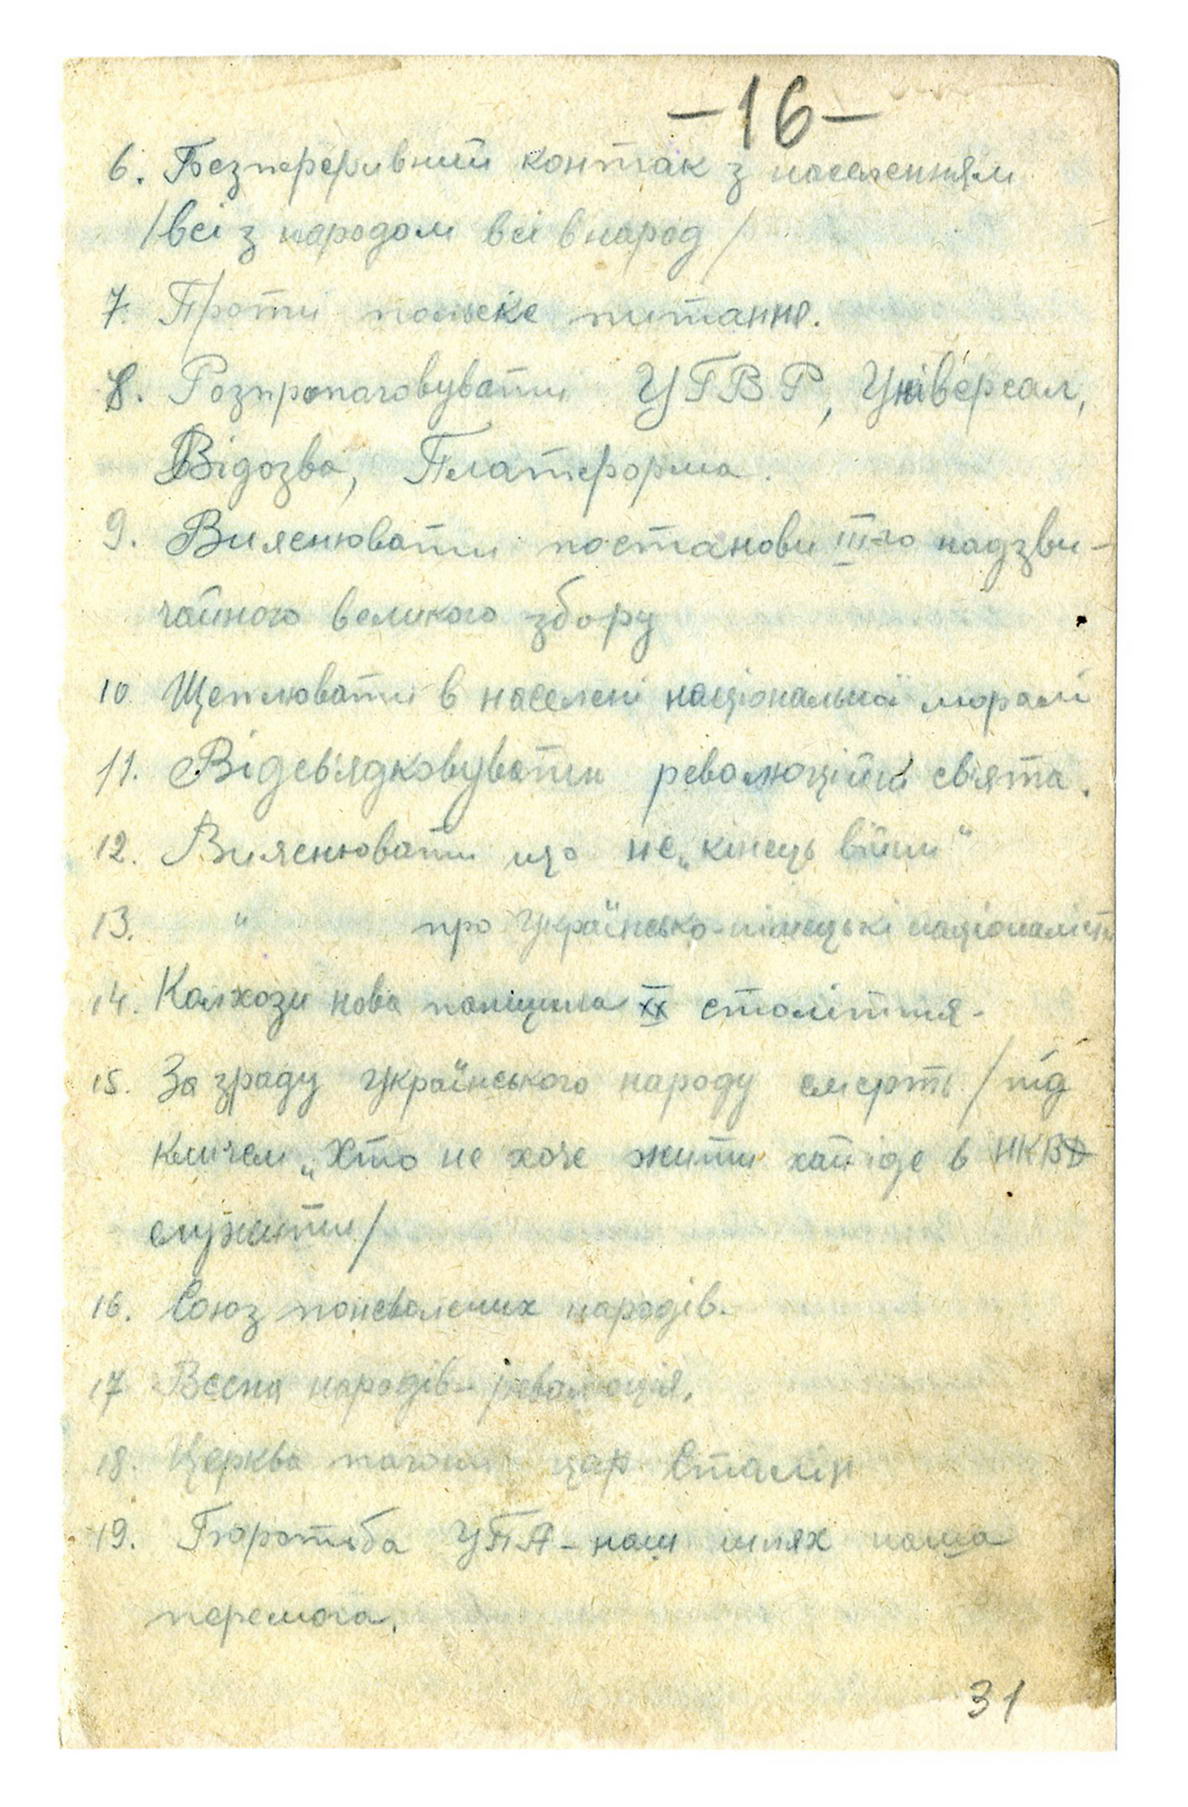 -16-
6. Безперервний контак з населенням
/всі з народом всі в народ/
7. Проти польске питання.
8. Розпропаговувати УГВР, Універсал,
Відозва, Платформа.
9. Вияснювати постанови III-го надзви-
чайного великого збору
10. Щеплювати в населені національної моралі
11. Відсвядковувати революційні свята.
12. Вияснювати що не „кінець війни"
13. " про Українсько-німецькі націоналісти
14. Колхози нова панщина XX століття-
15. За зраду українського народу смерть /під
кличем „Хто не хоче жити хай іде в НКВД
служити/
16. Союз поневолених народів.
17 Весна народів - революція.
18. Церква цар Сталін
19. Боротьба УПА - наш шлях наша
перемога.
31